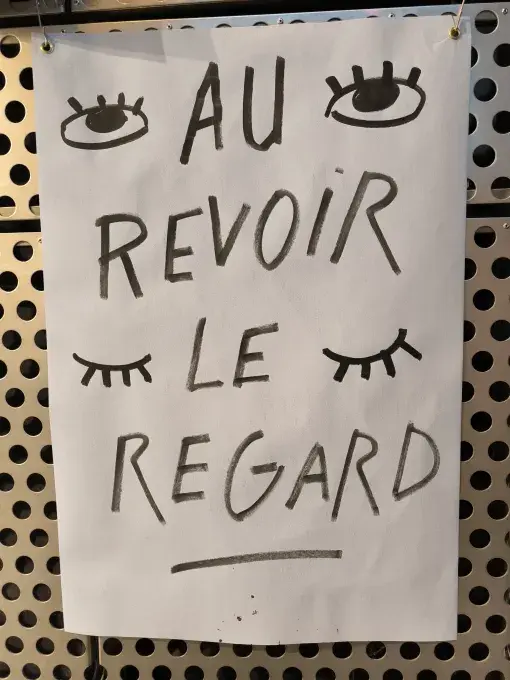 AU
REVOIR
LE
REGARD